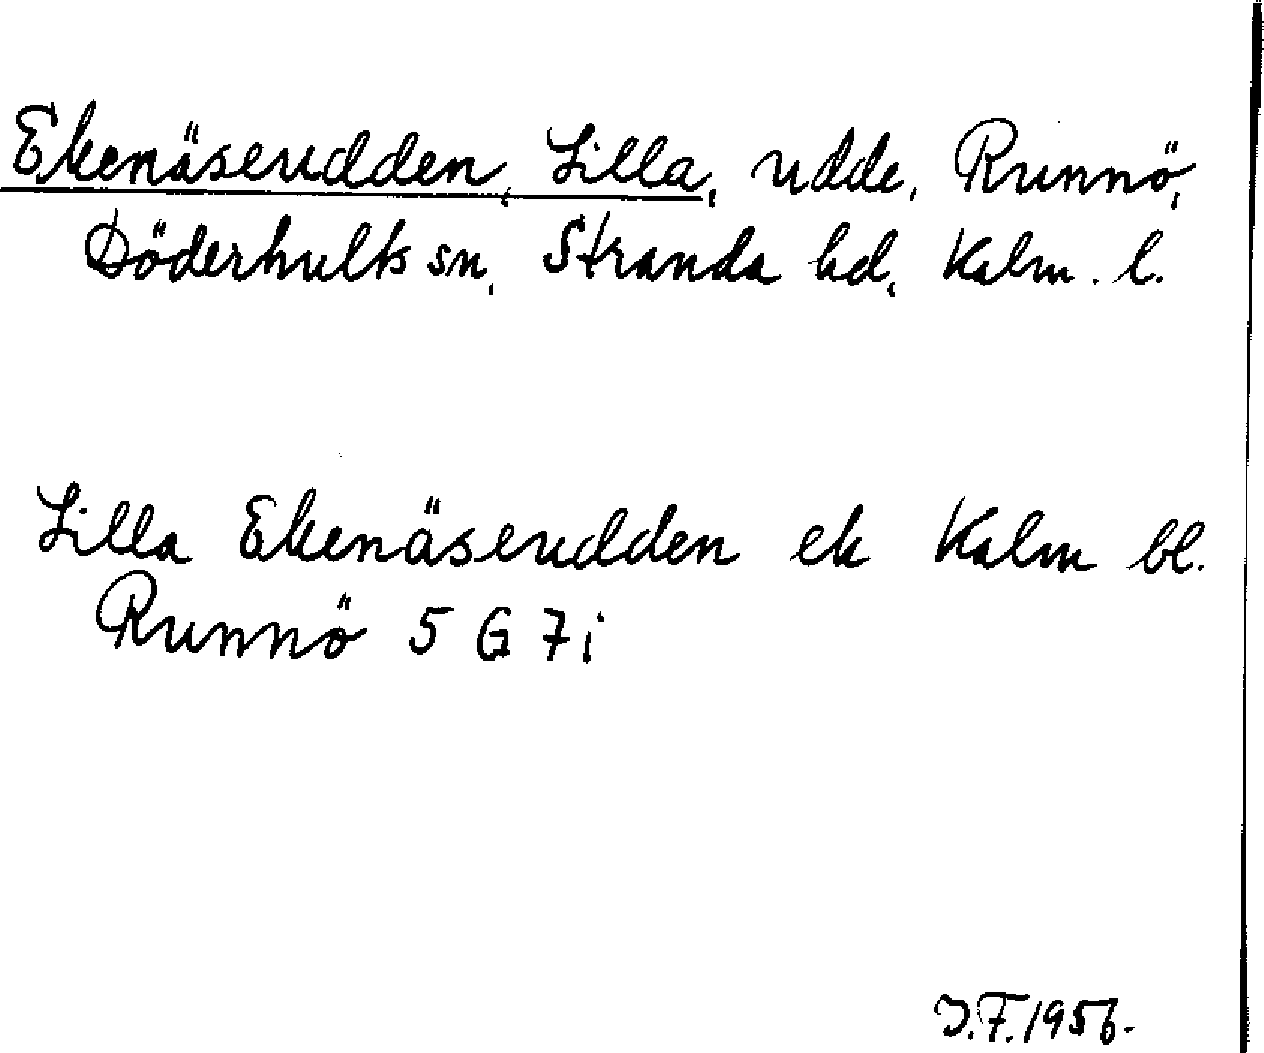 Ekenäseudden, Lilla, udde, Runnö,
Döderhults sn, Stranda hd, Kalm. l.
Lilla Ekenäseudden ek Kalm bl.
Runnö 5 G 7i
J.F. 1956.